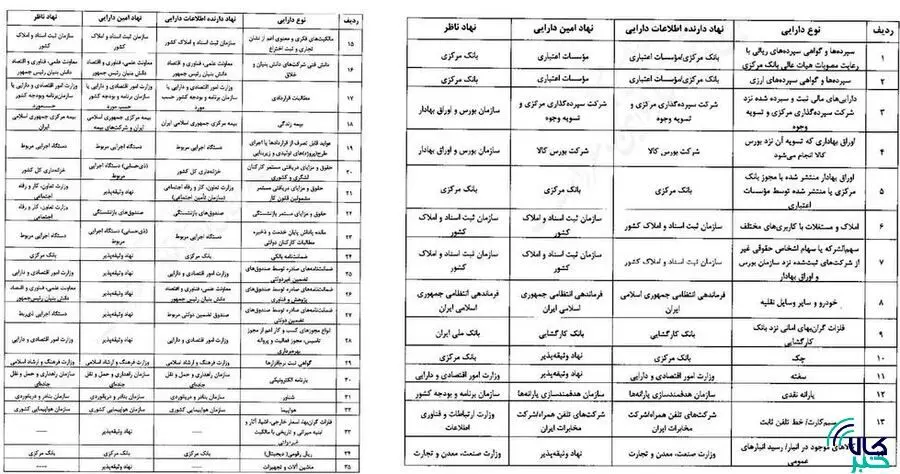 ردیف نوع دارایی نهاد دارنده اطلاعات دارایی نهاد امین دارایی نهاد ناظر
۱ سپرده‌ها و گواهی سپرده‌های ریالی با رعایت مصوبات هیات عالی بانک مرکزی بانک مرکزی/مؤسسات اعتباری مؤسسات اعتباری بانک مرکزی
۲ سپرده‌ها و گواهی سپرده‌های ارزی بانک مرکزی/مؤسسات اعتباری مؤسسات اعتباری بانک مرکزی
۳ دارایی‌های مالی ثبت و سپرده شده نزد شرکت سپرده‌گذاری مرکزی و تسویه وجوه شرکت سپرده‌گذاری مرکزی و تسویه وجوه شرکت سپرده‌گذاری مرکزی و تسویه وجوه سازمان بورس و اوراق بهادار
۴ اوراق بهاداری که تسویه آن نزد بورس کالا انجام می‌شود شرکت بورس کالا شرکت بورس کالا سازمان بورس و اوراق بهادار
۵ اوراق بهادار منتشر شده با مجوز بانک مرکزی یا منتشر شده توسط مؤسسات اعتباری بانک مرکزی بانک مرکزی بانک مرکزی
۶ املاک و مستغلات با کاربری‌های مختلف سازمان ثبت اسناد و املاک کشور سازمان ثبت اسناد و املاک کشور سازمان ثبت اسناد و املاک کشور
۷ سهم‌الشرکه یا سهام اشخاص حقوقی غیر از شرکت‌های ثبت‌شده نزد سازمان بورس و اوراق بهادار سازمان ثبت اسناد و املاک کشور سازمان ثبت اسناد و املاک کشور سازمان ثبت اسناد و املاک کشور
۸ خودرو و سایر وسایل نقلیه فرماندهی انتظامی جمهوری اسلامی ایران فرماندهی انتظامی جمهوری اسلامی ایران فرماندهی انتظامی جمهوری اسلامی ایران
۹ فلزات گران‌بهای امانی نزد بانک کارگشایی بانک کارگشایی بانک کارگشایی بانک ملی ایران
۱۰ چک بانک مرکزی نهاد وثیقه‌پذیر بانک مرکزی
۱۱ سفته وزارت امور اقتصادی و دارایی نهاد وثیقه‌پذیر وزارت امور اقتصادی و دارایی
۱۲ یارانه نقدی سازمان هدفمندسازی یارانه‌ها سازمان هدفمندسازی یارانه‌ها سازمان برنامه و بودجه کشور
۱۳ سیم‌کارت/ خط تلفن ثابت شرکت‌های تلفن همراه/شرکت مخابرات ایران شرکت‌های تلفن همراه/شرکت مخابرات ایران وزارت ارتباطات و فناوری اطلاعات
موجود در انبار/ رسید انبارهای عمومی وزارت صنعت، معدن و تجارت نهاد وثیقه‌پذیر وزارت صنعت، معدن و تجارت
کالا خبر
ردیف نوع دارایی نهاد دارنده اطلاعات دارایی نهاد امین دارایی نهاد ناظر
۱۵ مالکیت‌های فکری و معنوی اعم از نشان تجاری و ثبت اختراع سازمان ثبت اسناد و املاک کشور سازمان ثبت اسناد و املاک کشور سازمان ثبت اسناد و املاک کشور
۱۶ دانش فنی شرکت‌های دانش بنیان و خلاق معاونت علمی، فناوری و اقتصاد دانش بنیان رئیس جمهور معاونت علمی، فناوری و اقتصاد دانش بنیان رئیس جمهور معاونت علمی، فناوری و اقتصاد دانش بنیان رئیس جمهور
۱۷ مطالبات قراردادی وزارت امور اقتصادی و دارایی یا سازمان برنامه و بودجه کشور حسب مورد وزارت امور اقتصادی و دارایی یا سازمان برنامه و بودجه کشور حسب مورد وزارت امور اقتصادی و دارایی یا سازمان برنامه و بودجه کشور حسب مورد
۱۸ بیمه زندگی بیمه مرکزی جمهوری اسلامی ایران بیمه مرکزی جمهوری اسلامی ایران و شرکت‌های بیمه بیمه مرکزی جمهوری اسلامی ایران
۱۹ عواید قابل تصرف از قراردادها یا اجرای طرح/پروژه‌های تولیدی و زیربنایی دستگاه اجرایی مربوط دستگاه اجرایی مربوط دستگاه اجرایی مربوط
۲۰ حقوق و مزایای دریافتی مستمر کارکنان لشگری و کشوری خزانه‌داری کل کشور (ذی‌حسابی) دستگاه اجرایی مربوط خزانه‌داری کل کشور
۲۱ حقوق و مزایای دریافتی مستمر مشمولین قانون کار وزارت تعاون، کار و رفاه اجتماعی (سازمان تأمین اجتماعی) نهاد وثیقه‌پذیر وزارت تعاون، کار و رفاه اجتماعی
۲۲ حقوق و مزایای مستمر بازنشستگی صندوق‌های بازنشستگی صندوق‌های بازنشستگی وزارت تعاون، کار و رفاه اجتماعی
۲۳ مانده پاداش پایان خدمت و ذخیره مطالبات کارکنان دولتی دستگاه اجرایی مربوط (ذی‌حسابی) دستگاه اجرایی مربوط دستگاه اجرایی مربوط
۲۴ ضمانتنامه بانکی بانک مرکزی نهاد وثیقه‌پذیر بانک مرکزی
۲۵ ضمانتنامه‌های صادره توسط صندوق‌های تضمین غیردولتی وزارت امور اقتصادی و دارایی نهاد وثیقه‌پذیر وزارت امور اقتصادی و دارایی
۲۶ ضمانتنامه‌های صادره توسط صندوق‌های پژوهش و فناوری معاونت علمی، فناوری و اقتصاد دانش بنیان رئیس جمهور نهاد وثیقه‌پذیر معاونت علمی، فناوری و اقتصاد دانش بنیان رئیس‌جمهور
۲۷ ضمانتنامه‌های صادره توسط صندوق‌های تضمین دولتی صندوق تضمین دولتی مربوط نهاد وثیقه‌پذیر دستگاه اجرایی
۲۸ انواع مجوزهای کسب و کار اعم از مجوز تاسیس، مجوز فعالیت و پروانه بهره‌برداری وزارت امور اقتصادی و دارایی نهاد وثیقه‌پذیر وزارت امور اقتصادی و دارایی
۲۹ گواهی ثبت نرم‌افزارها وزارت فرهنگ و ارشاد اسلامی وزارت فرهنگ و ارشاد اسلامی وزارت فرهنگ و ارشاد اسلامی
۳۰ بارنامه الکترونیکی سازمان راهداری و حمل و نقل جاده‌ای سازمان راهداری و حمل و نقل جاده‌ای سازمان راهداری و حمل و نقل جاده‌ای
۳۱ شناور سازمان بنادر و دریانوردی سازمان بنادر و دریانوردی سازمان بنادر و دریانوردی
۳۲ هواپیما سازمان هواپیمایی کشوری سازمان هواپیمایی کشوری سازمان هواپیمایی کشوری
۳۳ فلزات گران‌بها، اسعار خارجی، اشیا، آثار و ابنیه میراثی و تاریخی با مالکیت غیردولتی نهاد وثیقه‌پذیر
۳۴ ریال رقومی (دیجیتال) بانک مرکزی بانک مرکزی بانک مرکزی
۳۵ ماشین آلات و تجهیزات نهاد وثیقه‌پذیر